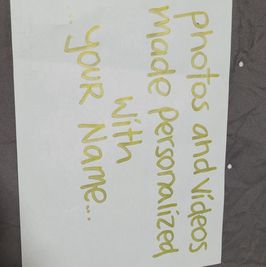 photos and videos
made personalized
with
your Name...